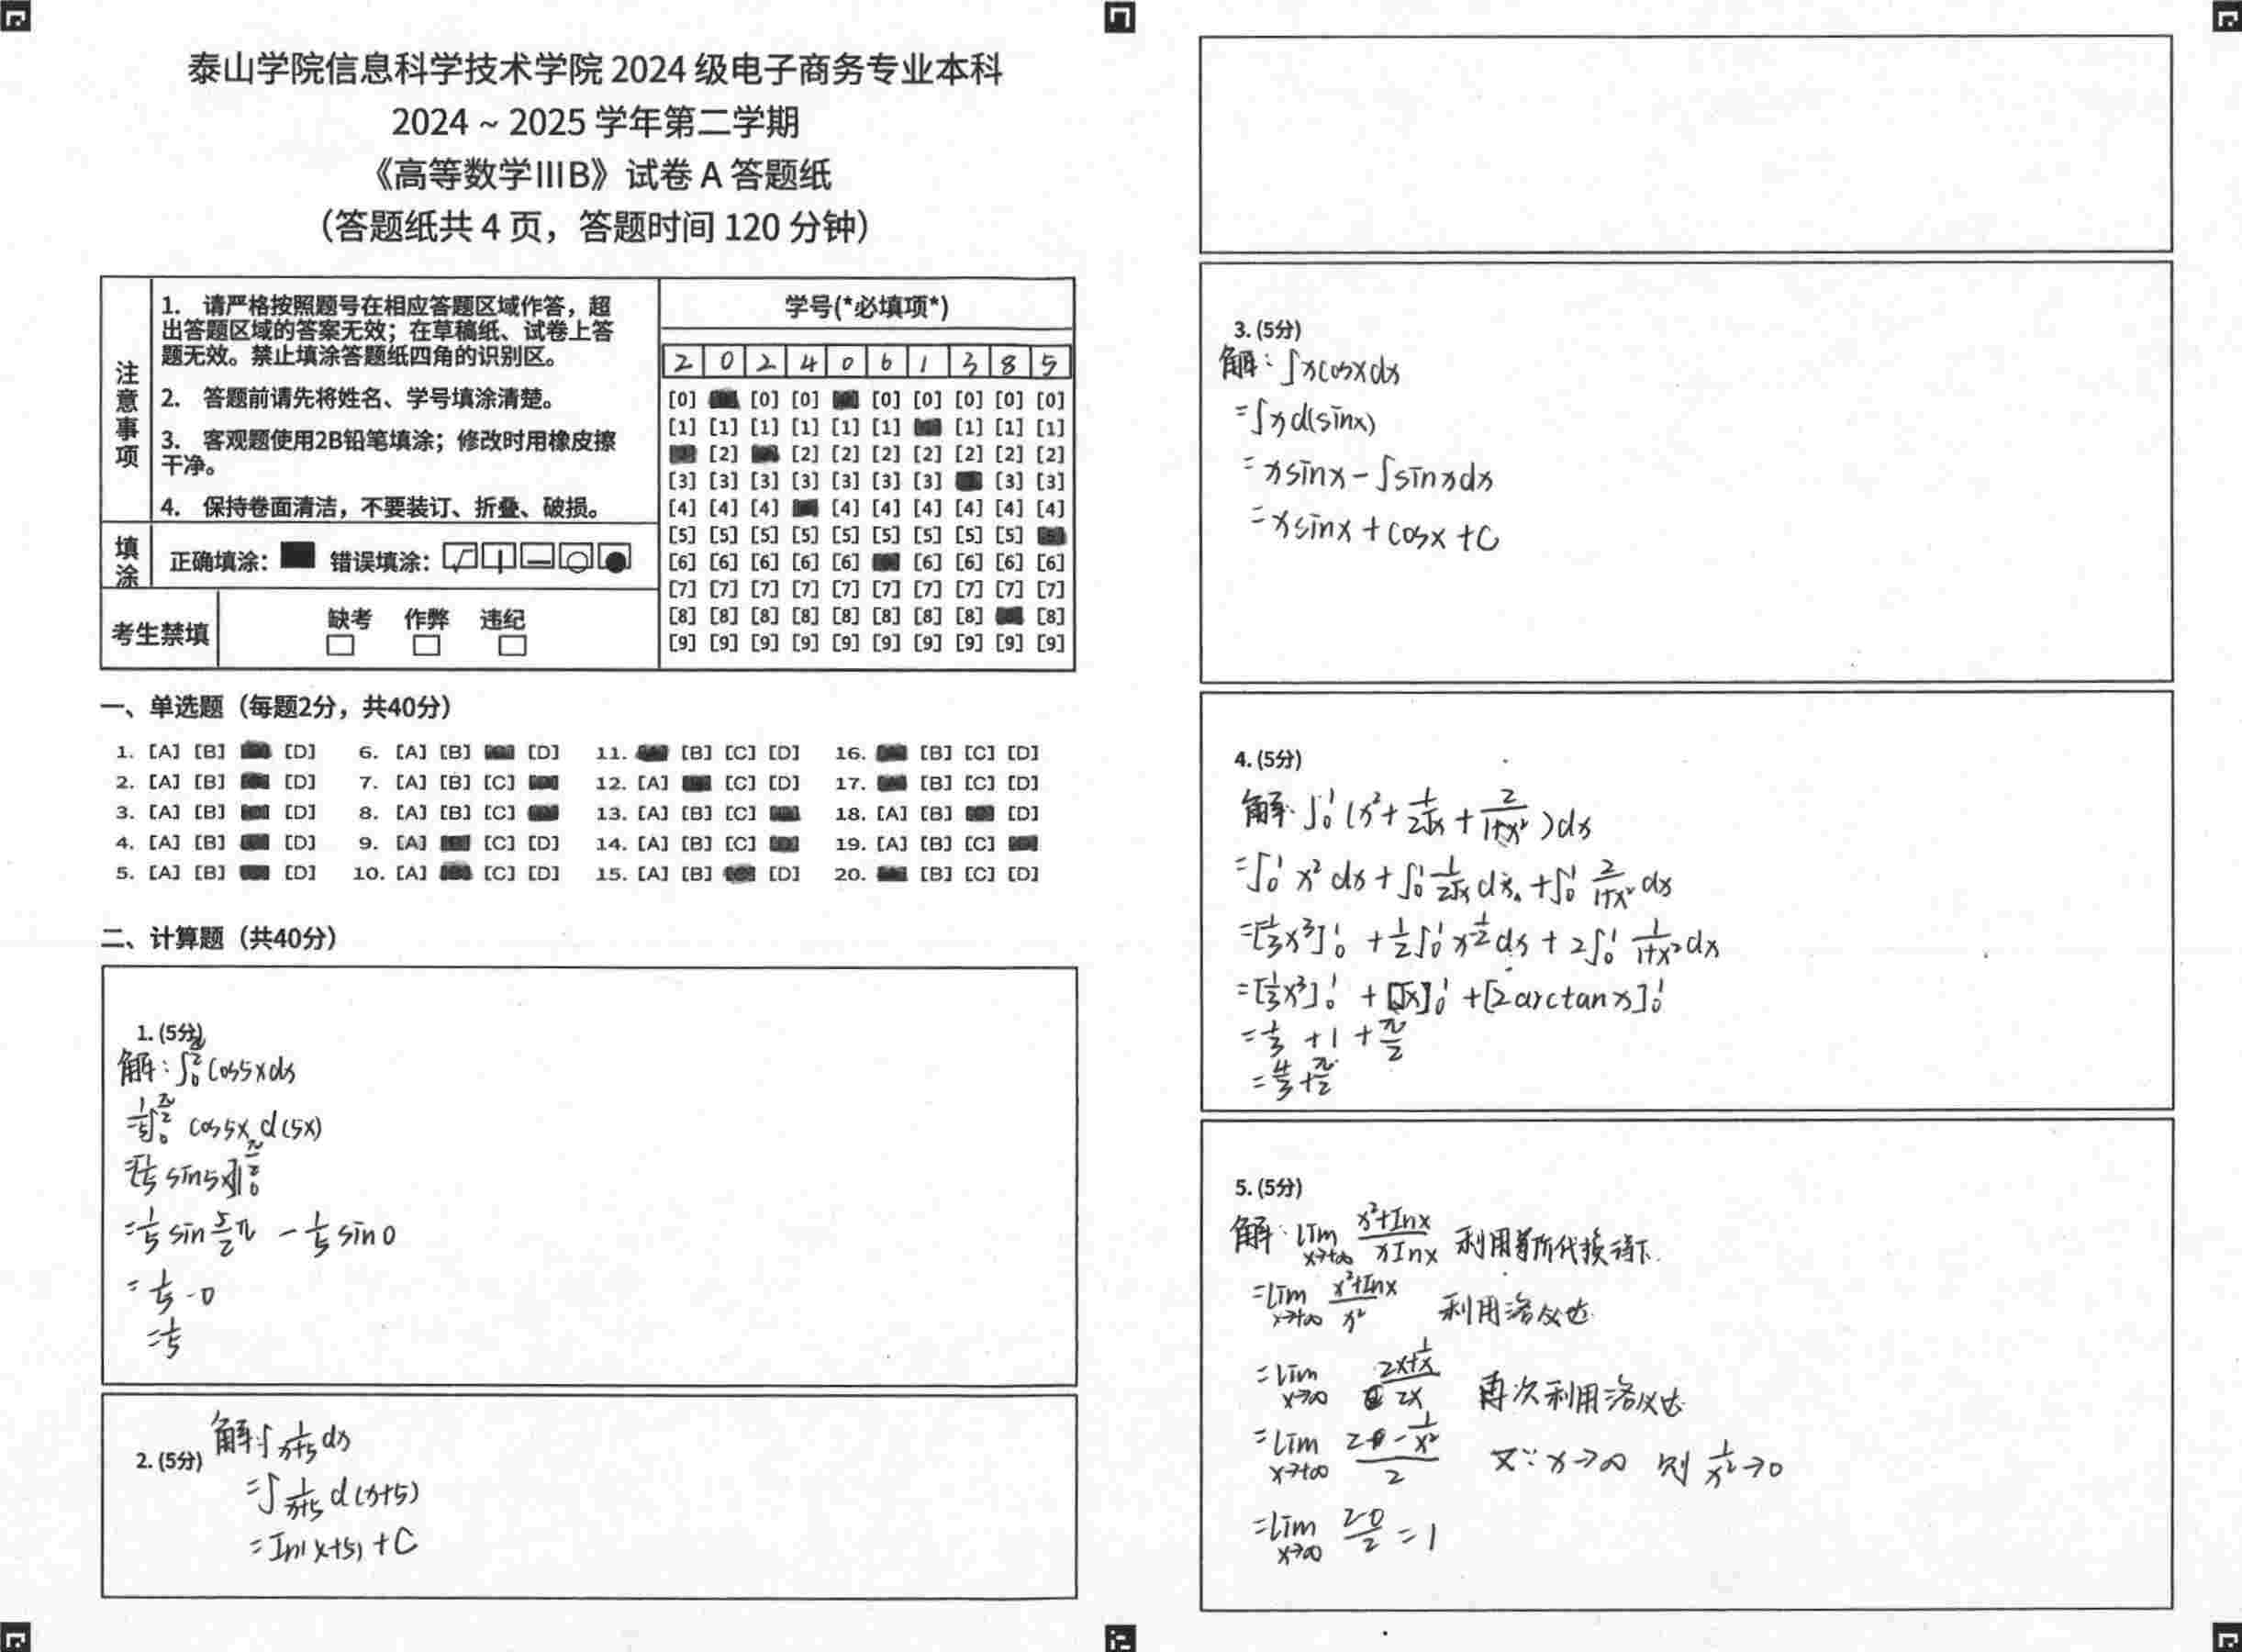 泰山学院信息科学技术学院 2024 级电子商务专业本科
2024 ~ 2025 学年第二学期
《高等数学ⅢB》试卷 A 答题纸
（答题纸共 4 页，答题时间 120 分钟）
注意事项
1. 请严格按照题号在相应答题区域作答，超
出答题区域的答案无效；在草稿纸、试卷上答
题无效。禁止填涂答题纸四角的识别区。
2. 答题前请先将姓名、学号填涂清楚。
3. 客观题使用2B铅笔填涂；修改时用橡皮擦
干净。
4. 保持卷面清洁，不要装订、折叠、破损。
填涂
正确填涂： 错误填涂：
考生禁填
缺考 作弊 违纪
学号(*必填项*)
2 0 2 4 0 6 1 3 8 5
[0] [0] [0] [0] [0] [0] [0] [0]
[1] [1] [1] [1] [1] [1] [1] [1] [1]
[2] [2] [2] [2] [2] [2] [2] [2]
[3] [3] [3] [3] [3] [3] [3] [3] [3]
[4] [4] [4] [4] [4] [4] [4] [4] [4]
[5] [5] [5] [5] [5] [5] [5] [5] [5]
[6] [6] [6] [6] [6] [6] [6] [6] [6]
[7] [7] [7] [7] [7] [7] [7] [7] [7] [7]
[8] [8] [8] [8] [8] [8] [8] [8] [8]
[9] [9] [9] [9] [9] [9] [9] [9] [9] [9]
一、单选题（每题2分，共40分）
1. [A] [B] [D] 6. [A] [B] [D] 11. [B] [C] [D] 16. [B] [C] [D]
2. [A] [B] [D] 7. [A] [B] [C] 12. [A] [C] [D] 17. [B] [C] [D]
3. [A] [B] [D] 8. [A] [B] [C] 13. [A] [B] [C] 18. [A] [B] [D]
4. [A] [B] [D] 9. [A] [C] [D] 14. [A] [B] [C] 19. [A] [B] [C]
5. [A] [B] [D] 10. [A] [C] [D] 15. [A] [B] [D] 20. [B] [C] [D]
二、计算题（共40分）
1. (5分)
解：∫₀^(π/2) cos5x dx
=1/5∫₀^(π/2) cos5x d(5x)
=[1/5 sin5x]|₀^(π/2)
=1/5 sin 5/2 π - 1/5 sin0
=1/5 - 0
=1/5
2. (5分)
解∫ 1/(x+5) dx
=∫ 1/(x+5) d(x+5)
=In|x+5| + C
3. (5分)
解：∫xcosxdx
=∫x d(sinx)
=xsinx-∫sinxdx
=xsinx+cosx+C
4. (5分)
解：∫₀¹ (x²+1/(2√x)+2/(1+x²))dx
=∫₀¹ x² dx+∫₀¹ 1/(2√x) dx+∫₀¹ 2/(1+x²) dx
=[1/3x³]₀¹ +1/2∫₀¹ x^(-1/2) dx + 2∫₀¹ 1/(1+x²) dx
=[1/3x³]₀¹ + [√x]₀¹ +[2arctanx]₀¹
=1/3 +1 +π/2
=4/3+π/2
5. (5分)
解：lim x→+∞ (x²+Inx)/(xInx) 利用等价代换得
=lim x→+∞ (x²+Inx)/x² 利用洛必达
=lim x→∞ (2x+1/x)/(2x) 再次利用洛必达
=lim x→+∞ (2-1/x²)/2 又∵x→∞ 则 1/x²→0
=lim x→∞ (2-0)/2 =1